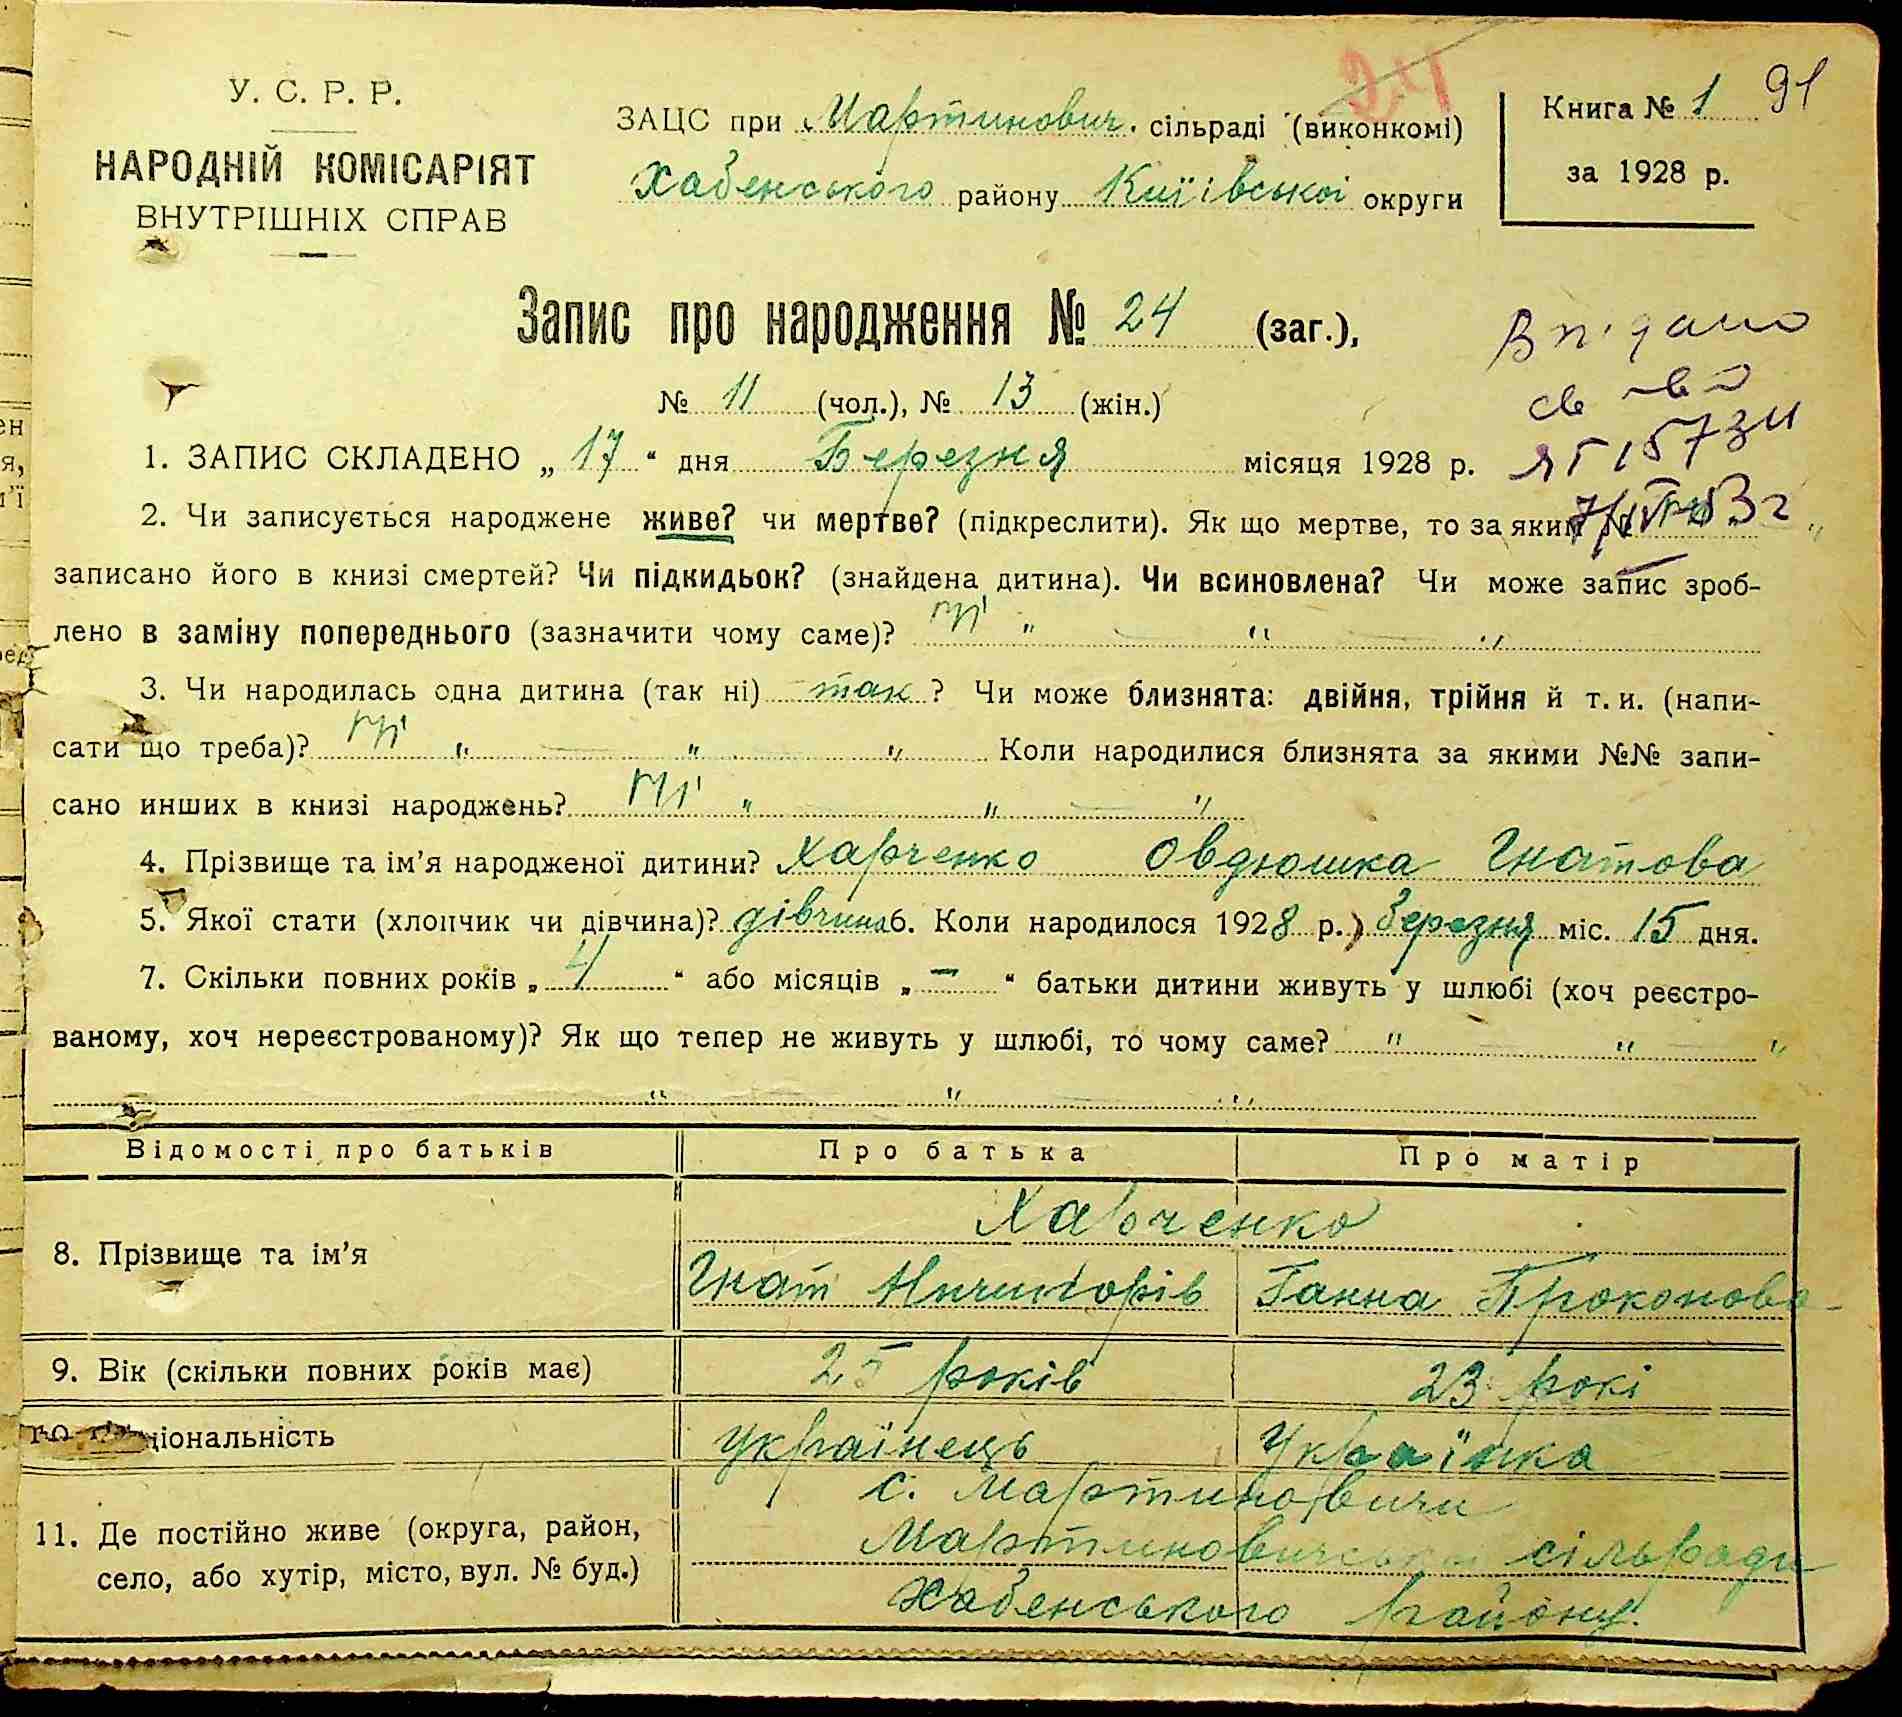 У. С. Р. Р.
НАРОДНІЙ КОМІСАРІЯТ
ВНУТРІШНІХ СПРАВ
24
ЗАЦС при Мартинович. сільраді (виконкомі)
Хабенського району Київської округи
Книга № 1 91
за 1928 р.
Запис про народження № 24 (заг.),
№ 11 (чол.), № 13 (жін.)
1. ЗАПИС СКЛАДЕНО „ 17 “ дня Березня місяця 1928 р.
2. Чи записується народжене живе? чи мертве? (підкреслити). Як що мертве, то за яким №
записано його в книзі смертей? Чи підкидьок? (знайдена дитина). Чи всиновлена? Чи може запис зроб-
лено в заміну попереднього (зазначити чому саме)? ні " " "
3. Чи народилась одна дитина (так ні) так ? Чи може близнята: двійня, трійня й т. и. (напи-
сати що треба)? ні " " " Коли народилися близнята за якими №№ запи-
сано инших в книзі народжень? ні " " "
4. Прізвище та ім’я народженої дитини? Харченко Овдюшка Гнатова
5. Якої стати (хлопчик чи дівчина)? дівчина 6. Коли народилося 1928 р. березня міс. 15 дня.
7. Скільки повних років „ 4 “ або місяців „ – “ батьки дитини живуть у шлюбі (хоч реєстро-
ваному, хоч нереєстрованому)? Як що тепер не живуть у шлюбі, то чому саме? " " "
" " "
Відомості про батьків Про батька Про матір
8. Прізвище та ім’я
Харченко
Гнат Ничипорів Ганна Прокопова
9. Вік (скільки повних років має) 25 років 23 рокі
ціональність українець Українка
11. Де постійно живе (округа, район,
село, або хутір, місто, вул. № буд.)
с. Мартиновичи
Мартиновичської сільради
Хабенського району.